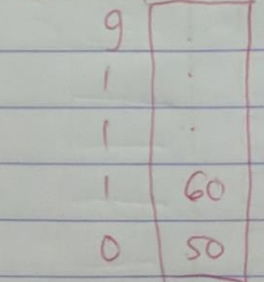 9 .
1 .
1 .
1 60
0 50